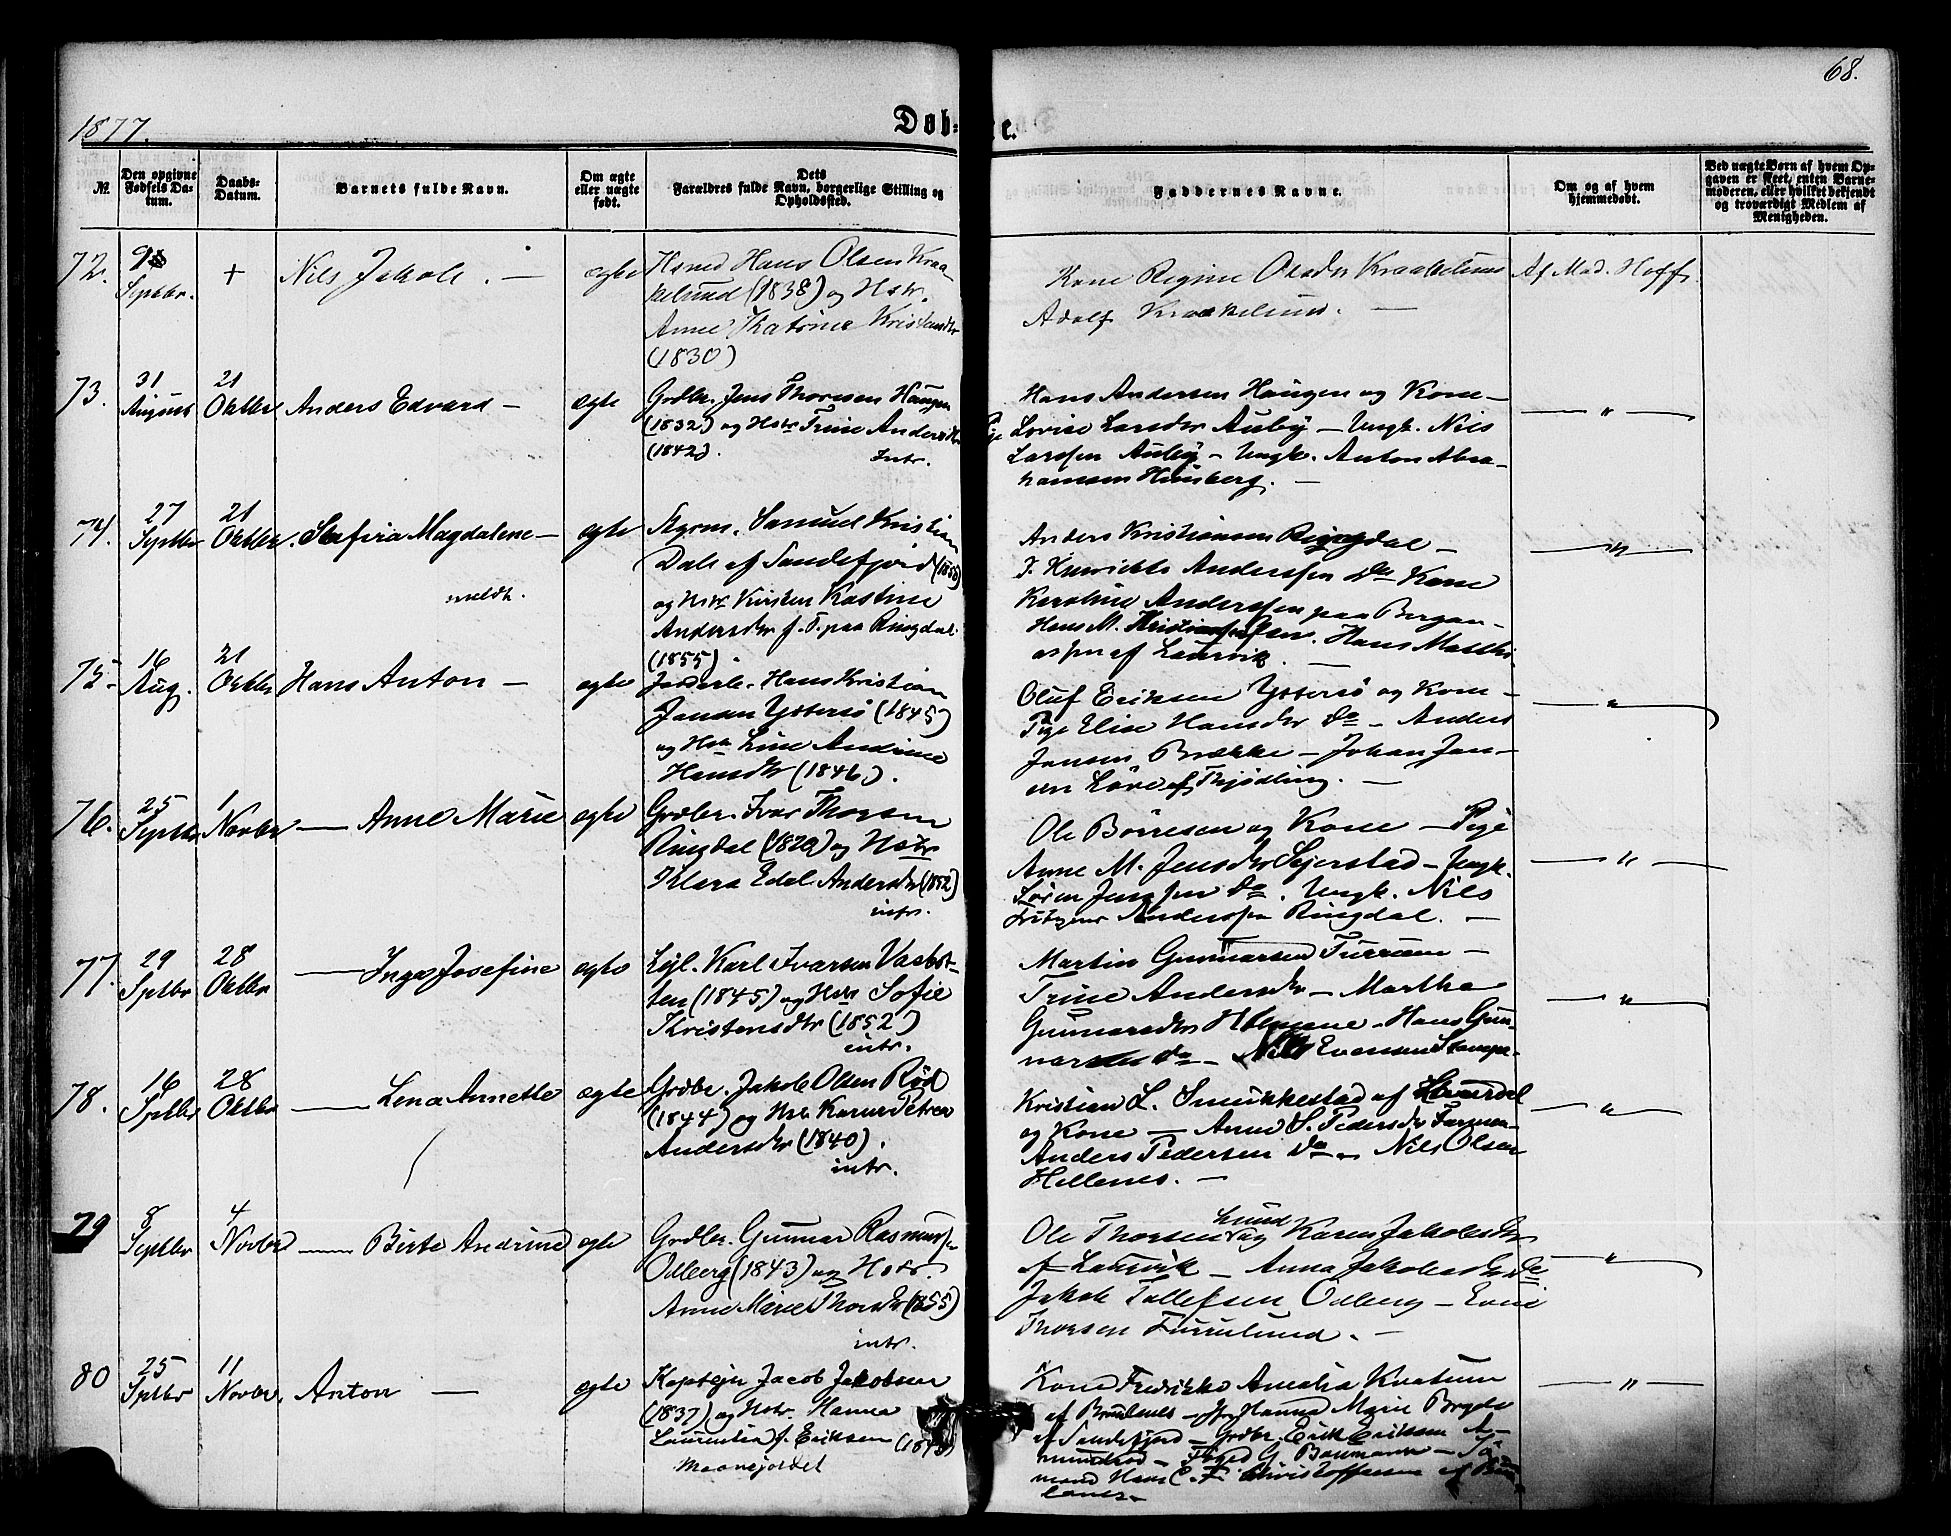 68.
1877.
Døb-
te.
№
Den opgivne Fødsels Datum.
Daabs-Datum.
Barnets fulde Navn.
Om ægte eller uægte født.
Dets Forældres fulde Navn, borgerlige Stilling og Opholdssted.
Faddernes Navne.
Om og af hvem hjemmedøbt.
Ved uægte Børn af hvem Opgaven er skeet, enten Barnemoderen, eller hvilket bekjendt og troværdigt Medlem af Menigheden.
72. 9 Septbr. + Nils Jakob. — ægte
Hsmd Hans Olsen Kraa-
kelund (1838) og Hstr.
Anne Katrine Kristensdtr
(1830)
Kone Regine Olsdtr Kraakelund
Adolf Kraakelund. —
Af Mad. Hoff.
73. 31 August 21 Oktbr Anders Edvard — ægte
Grdbr. Jens Thoresen Haugen
(1832) og Hstr Trine Andersdtr
(1842). intr.
Hans Andersen Haugen og Kone —
Pige Lovise Larsdtr Auby — Ungk. Nils
Larssen Auby — Ungk. Anton Abra-
hamsen Himberg. —
— " —
74. 27 Septbr 21 Oktbr. Safira Magdalene — ægte
meldt.
Styrm. Samuel Kristian
Dale af Sandefjord
og Hstr Kirsten Kastine
Andersdtr f. T. paa Ringdal
(1855).
Anders Kristiansen Ringdal —
J. Henriette Anderssen Do Kone
Karoline Anderssen paa Bergan —
Hans M. Kristiansen. Hans Matthi-
assen af Laurvik. —
— " —
75. 16 Aug. 21 Oktbr Hans Anton — ægte
Jorderb. Hans Kristian
Jansen Ytterø (1845)
og Hstr Line Andrine
Hansdtr (1846).
Oluf Eriksen Ytterø og Kone —
Pige Elise Hansdtr Do — Anders
Jansen Brække — Johan Jan-
sen Løve af Thjødling. —
— " —
76. 25 Septbr 1 Novbr — Anne Marie ægte
Grdbr. Ivar Thorsen
Ringdal og Hstr
Klara Edel Andersdtr (1852)
intr.
Ole Børresen og Kone — Pige
Anne M. Jensdtr Sejerstad — Ungk.
Søren Jenssen Do. Ungk. Nils
Anderssen Ringdal. —
— " —
77. 29 Septbr 28 Oktbr — Inga Josefine ægte
Lejl. Karl Ivarsen Vasbot-
ten (1845) og Hstr Sofie
Kristensdtr (1852)
intr.
Martin Gunnarsen Furruum —
Trine Andersdtr — Martha
Gunnarsdtr Holmene — Hans Gun-
narsen Do — Nils Evensen Stange-
— " —
78. 16 Septbr 28 Oktbr — Lena Annette ægte
Grdbr. Jakob Olsen Rød
(1844) og Hstr Karen Petrea
Andersdtr (1840).
intr.
Kristian L. Smukkestad af
og Kone — Anne S. Pedersdtr Farmen —
Anders Pedersen Do — Nils Olsen
Hellenes. —
— " —
79 8 Septbr 4 Novbr — Birte Andrine ægte
Grdbr. Gunnar Rasmussen
Odberg (1843) og Hstr.
Anne Marie Thorsdtr (1855)
intr.
Ole Thorsen Lund og Karen Jakobsdtr
af Laurvik — Anna Jakobsdtr Do
Jakob Tollefsen Odberg — Even
Thorsen Furrulund. —
— " —
80 25 Septbr 11 Novbr. Anton — ægte
Kaptejn Jacob Jakobsen
(1837) og Hstr. Hanna
Laurentia f. Eriksen
Maanejordet
Kone Fredrikke Amalia Kvatum
af Brunlanes — Jfr Hanna Marie Bryde
af Sandefjord — Grdbr. Erik Eriksen A-
mundrød — Foged G Baumann — Sø-
mand Hans C. F. Christoffersen af Brun-
lanes —
— " —